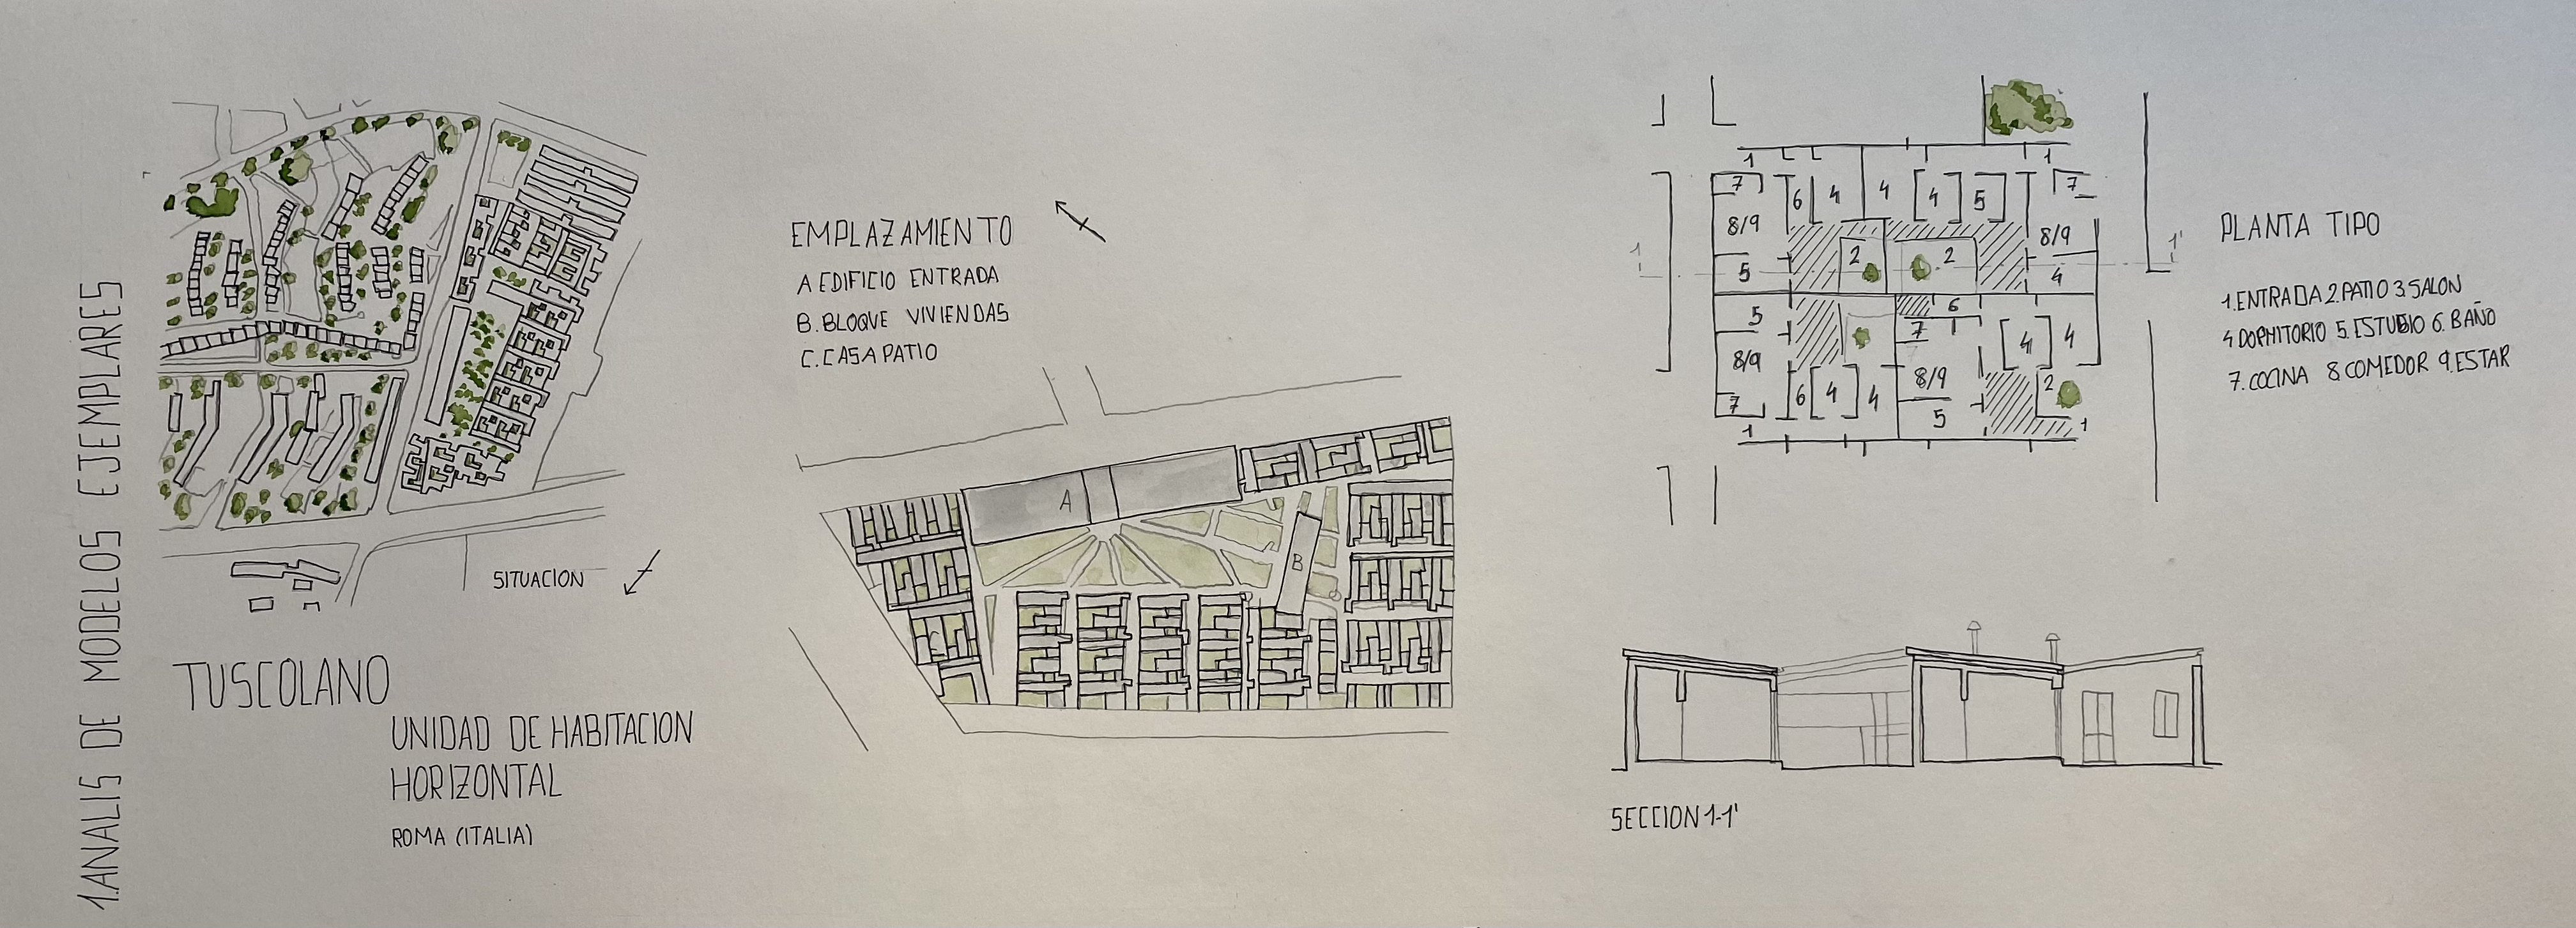 1.ANALIS DE MODELOS EJEMPLARES
SITUACION
TUSCOLANO
UNIDAD DE HABITACION
HORIZONTAL
ROMA (ITALIA)
EMPLAZAMIENTO
A EDIFICIO ENTRADA
B. BLOQUE VIVIENDAS
C. CASA PATIO
A
B
C
1 1
7 6 4 4 4 5 7
8/9 8/9
2 2
1 5 4 1'
5 6
7 4 4
8/9 8/9 2
7 6 4 4 5
1 1
PLANTA TIPO
1.ENTRADA 2.PATIO 3.SALON
4 DORMITORIO 5.ESTUDIO 6.BAÑO
7.COCINA 8 COMEDOR 9.ESTAR
SECCION 1-1'